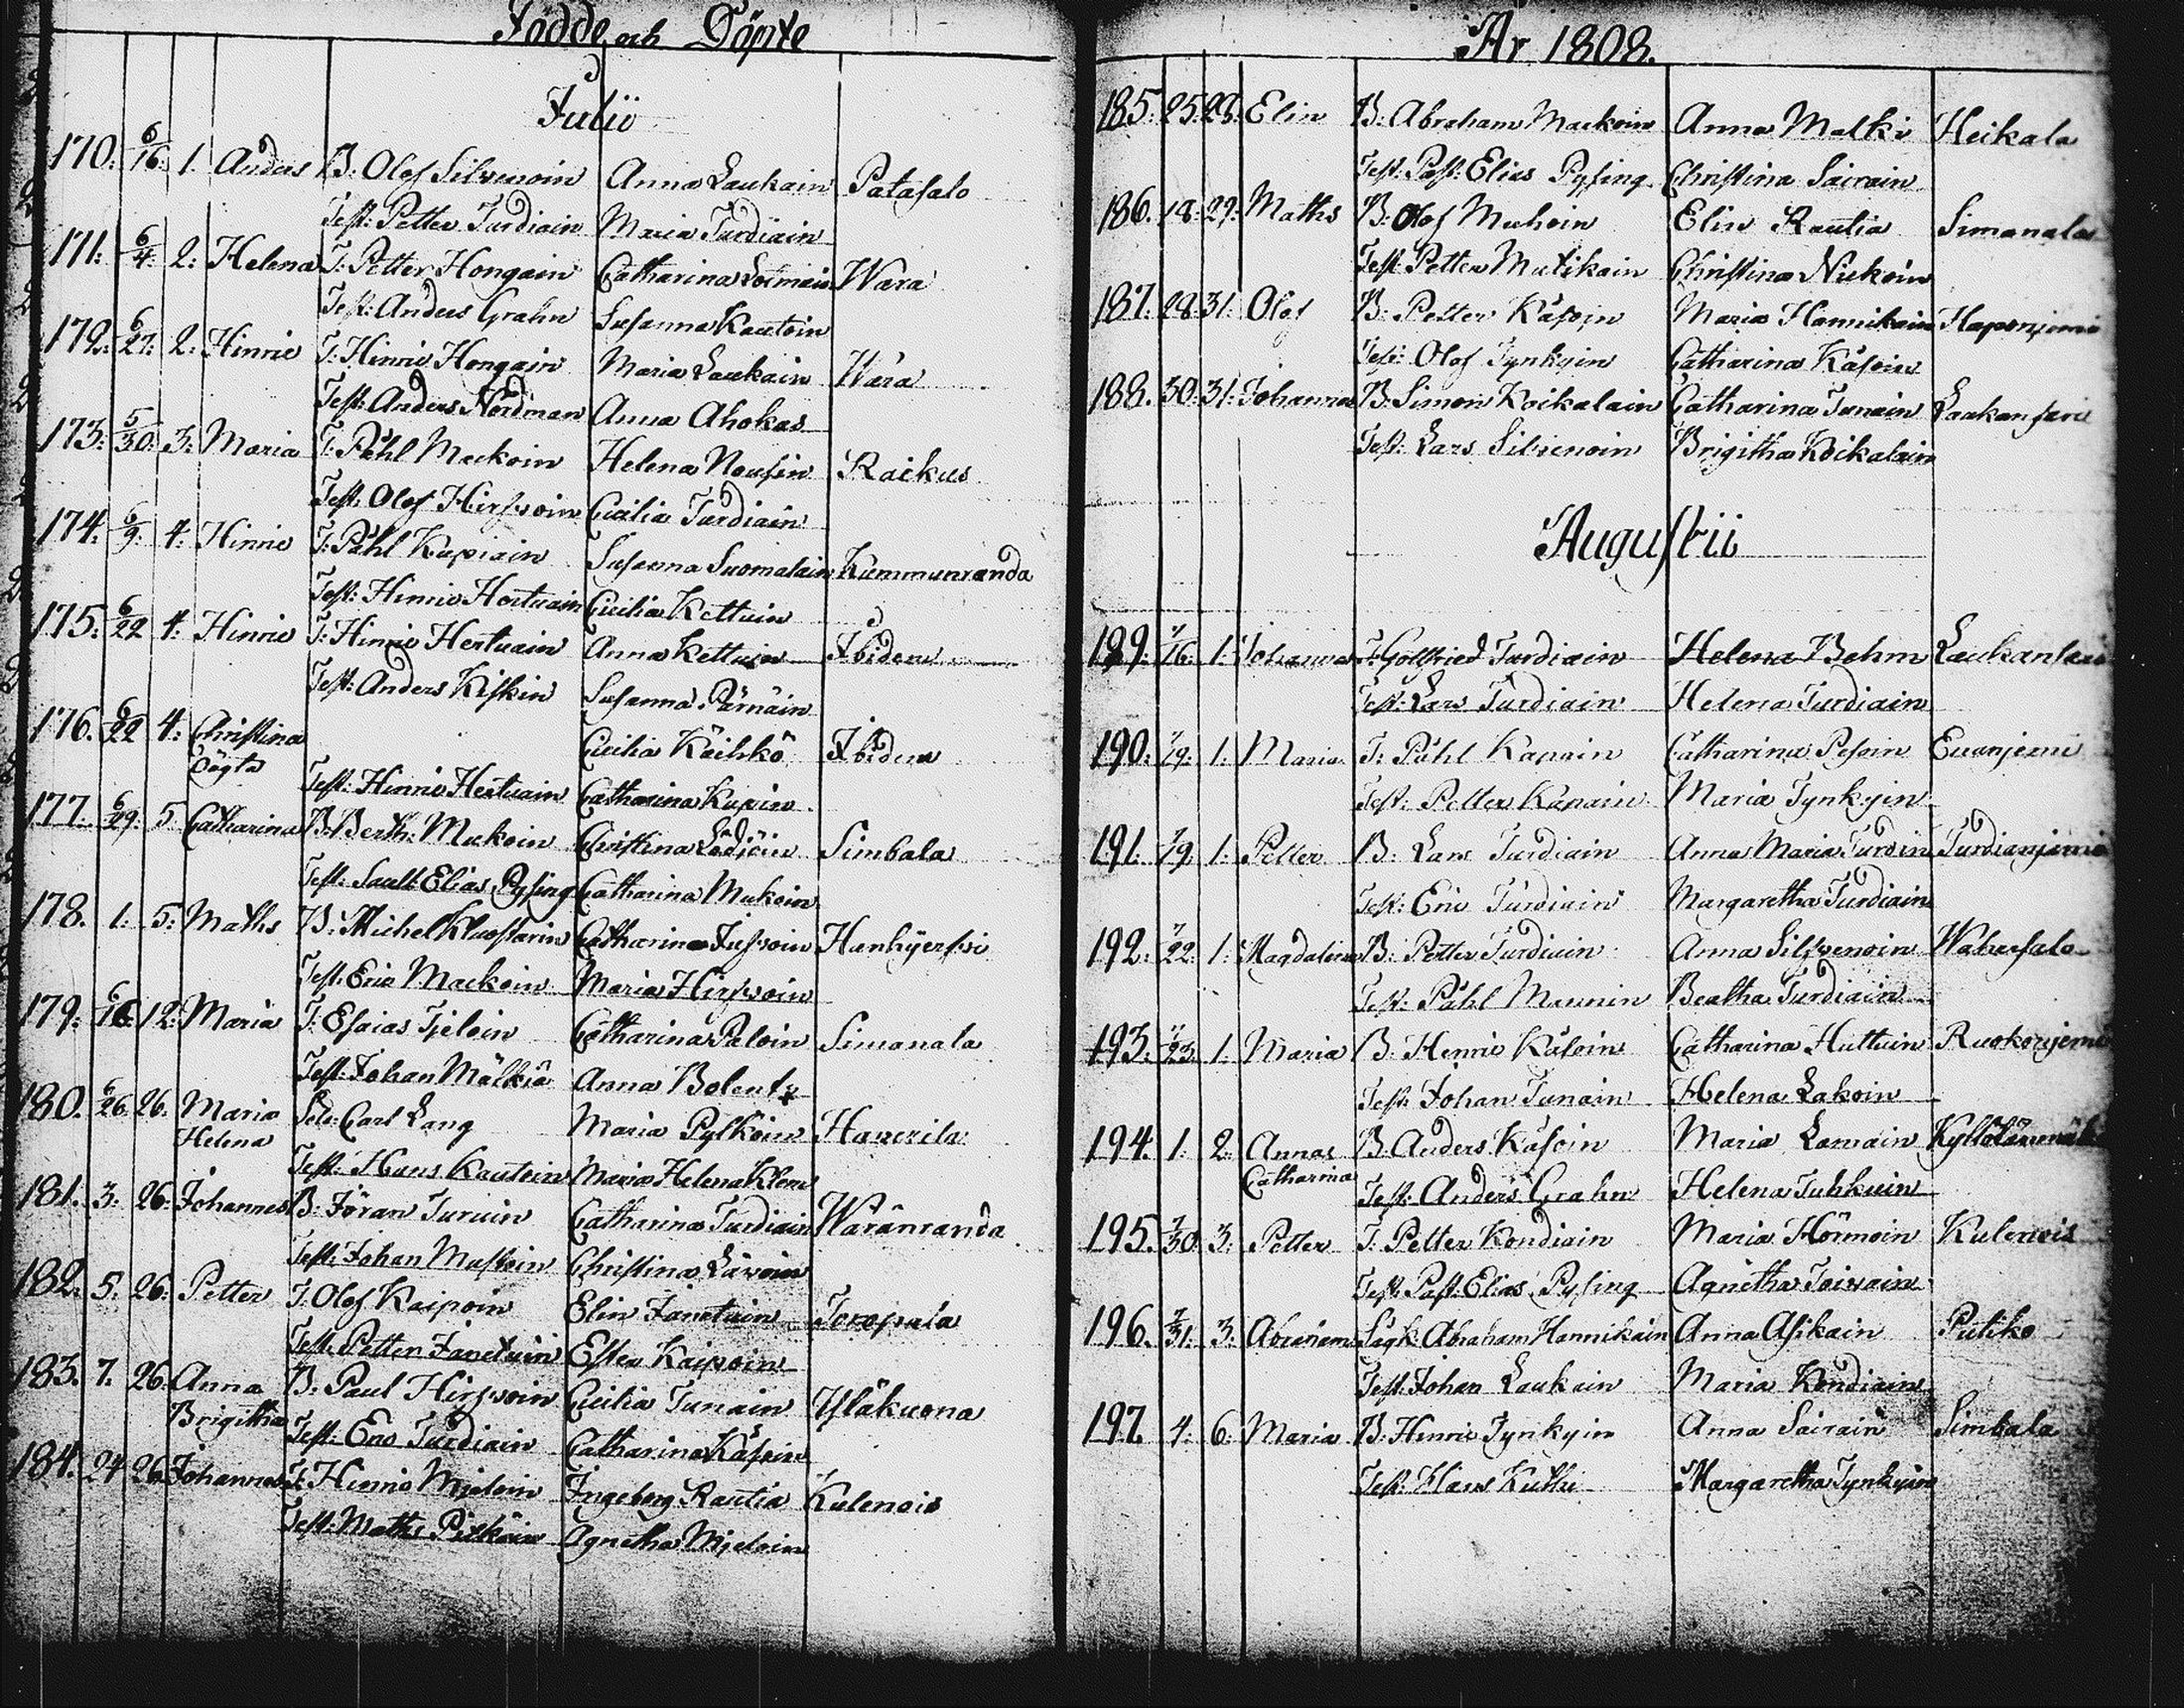 Födde och Döpte
Julii
170. 6/16. 1. Anders B. Olof Silvenoin Anna Laukain Patasalo
Test: Petter Turdiain Maria Turdiain
171. 6/4. 2. Helena T. Petter Hongain Catharina Wara
Test: Anders Grahn Susanna Kautoin
172. 6/27. 2. Hinric T. Hinric Hongain Maria Laukain Wara
Test: Anders Nordman Anna Ahokas
173. 5/30. 3. Maria T. Påhl Mackoin Helena Nousin Raikus
Test: Olof Hirfvoin Cicilia Turdiain
174. 6/9. 4. Hinric T. Påhl Kupiain Susanna Suomalain Kummunranda
Test: Hinric Hertuain Cicilia Kettuin
175. 6/22 4. Hinric T. Hinric Hertuain Anna Kettuin Ibidem
Test: Anders Kiskin Susanna Pärnäin
176. 6/22 4. Christina Cicilia Köihkö Ibidem
oägta
Test: Hinric Hertuain Catharina Kupin
177. 6/29. 5. Catharina B. Berth: Mukoin Christina Lödjöin Simbala
Test: Elias Pysing Catharina Mukoin
178. 1. 5. Maths B. Michel Kluostarin Catharina Jusvoin
Test: Eric Mackoin Maria Hirfvoin
179. 6/16. 12. Maria T. Esaias Tieloin Catharina Paloin Simanala
Test: Johan Mälkiä Anna Bolentz
180. 6/26. 26. Maria Carl Lang Maria Pylköin Haverila
Helena
Test: Hans Kautoin Maria Helena Klem
181. 3. 26. Johannes B. Jöran Turuin Catharina Turdiain Waränranda
Test: Johan Mustoin Christina Lävoin
182. 5. 26. Petter T. Olof Kaipoin Elin Janetuin Toropala
Test: Petter Janetuin Ester Kaipoin
183. 7. 26. Anna B. Paul Hirfvoin Cicilia Tunain Yläkuona
Brigitha
Test: Eric Turdiain Catharina Käsoin
184. 24 26. Johannes T. Hinric Mieloin Ingeborg Rautia Kulenois
Test: Maths Pitköin Agnetha Mieloin
År 1808.
185. 25. 28. Elin B. Abraham Mackoin Anna Malki Heikala
Test: Past: Elias Pysing Christina Sairain
186. 18. 29. Maths B. Olof Muhoin Elin Rautia Simanala
Test: Petter Mutikain Christina Niukoin
187. 28. 31. Olof B. Petter Käsoin Maria Hannikain Haponjemi
Test: Olof Tynkyin Catharina Käsoin
188. 30. 31. Johannes B. Simon Koikalain Catharina Tunain Laukansari
Test: Lars Silvenoin Brigitha Koikalain
Augustii
189. 7/16. 1. Johannes T. Gottfried Turdiain Helena Behm Laukansari
Test: Lars Turdiain Helena Turdiain
190. 7/19. 1. Maria T. Påhl Kapain Catharina Pesoin
Test: Petter Kapain Maria Tynkyin
191. 7/19 1. Petter B. Lars Turdiain Anna Maria Turdin Turdianjemi
Test: Eric Turdiain Margaretha Turdiain
192. 7/22. 1. Magdalena B. Petter Turdiain Anna Silfvenoin Wahersalo
Test: Påhl Maunin Beatha Turdiain
193. 7/23. 1. Maria B. Henric Käsoin Catharina Huttuin Ruokonjemi
Test: Johan Tunain Helena Lakoin
194. 1. 2. Anna B. Anders Käsoin Maria Lamain
Catharina
Test: Anders Grahn Helena Tuhkuin
195. 7/30. 3. Petter T. Petter Kondiain Maria Hörmoin Kulenois
Test: Past: Elias Pysing Agnetha Toivain
196. 7/31. 3. Abraham Abraham Hannikain Anna Asikain Putiko
Test: Johan Laukain Maria Kondiain
197. 4. 6. Maria B. Henric Tynkyin Anna Sairain Simbala
Test: Hans Kuthi Margaretha Tynkyin